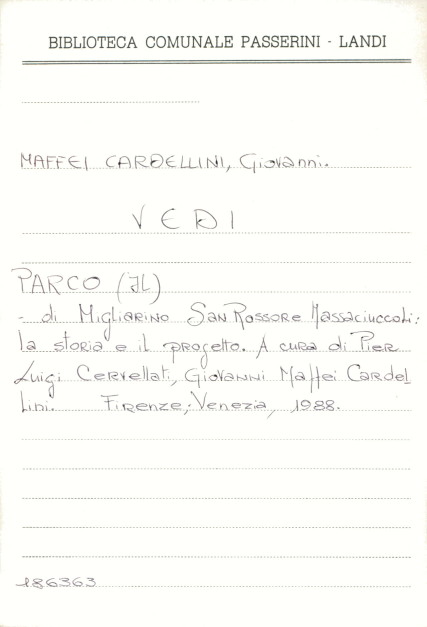 BIBLIOTECA COMUNALE PASSERINI - LANDI
MAFFEI CARDELLINI, Giovanni.
VEDI
PARCO (IL)
- di Migliarino San Rossore Massaciuccoli:
la storia e il progetto. A cura di Pier
Luigi Cervellati, Giovanni Maffei Cardel
lini. Firenze; Venezia, 1988.
186363